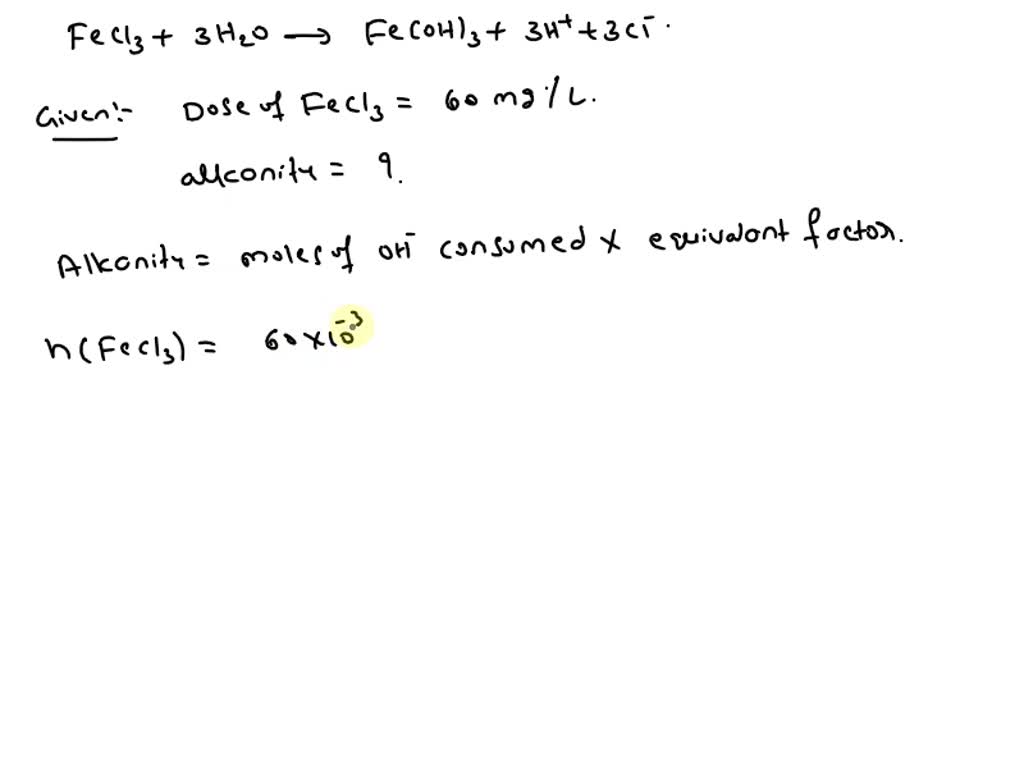 FeCl3 + 3H2O → Fe(OH)3 + 3H+ + 3Cl-.
Given:- Dose of FeCl3 = 60 mg/L.
alkanity = ?.
Alkanity = moles of OH- consumed × equivalent factor.
n(FeCl3) = 60×10-3